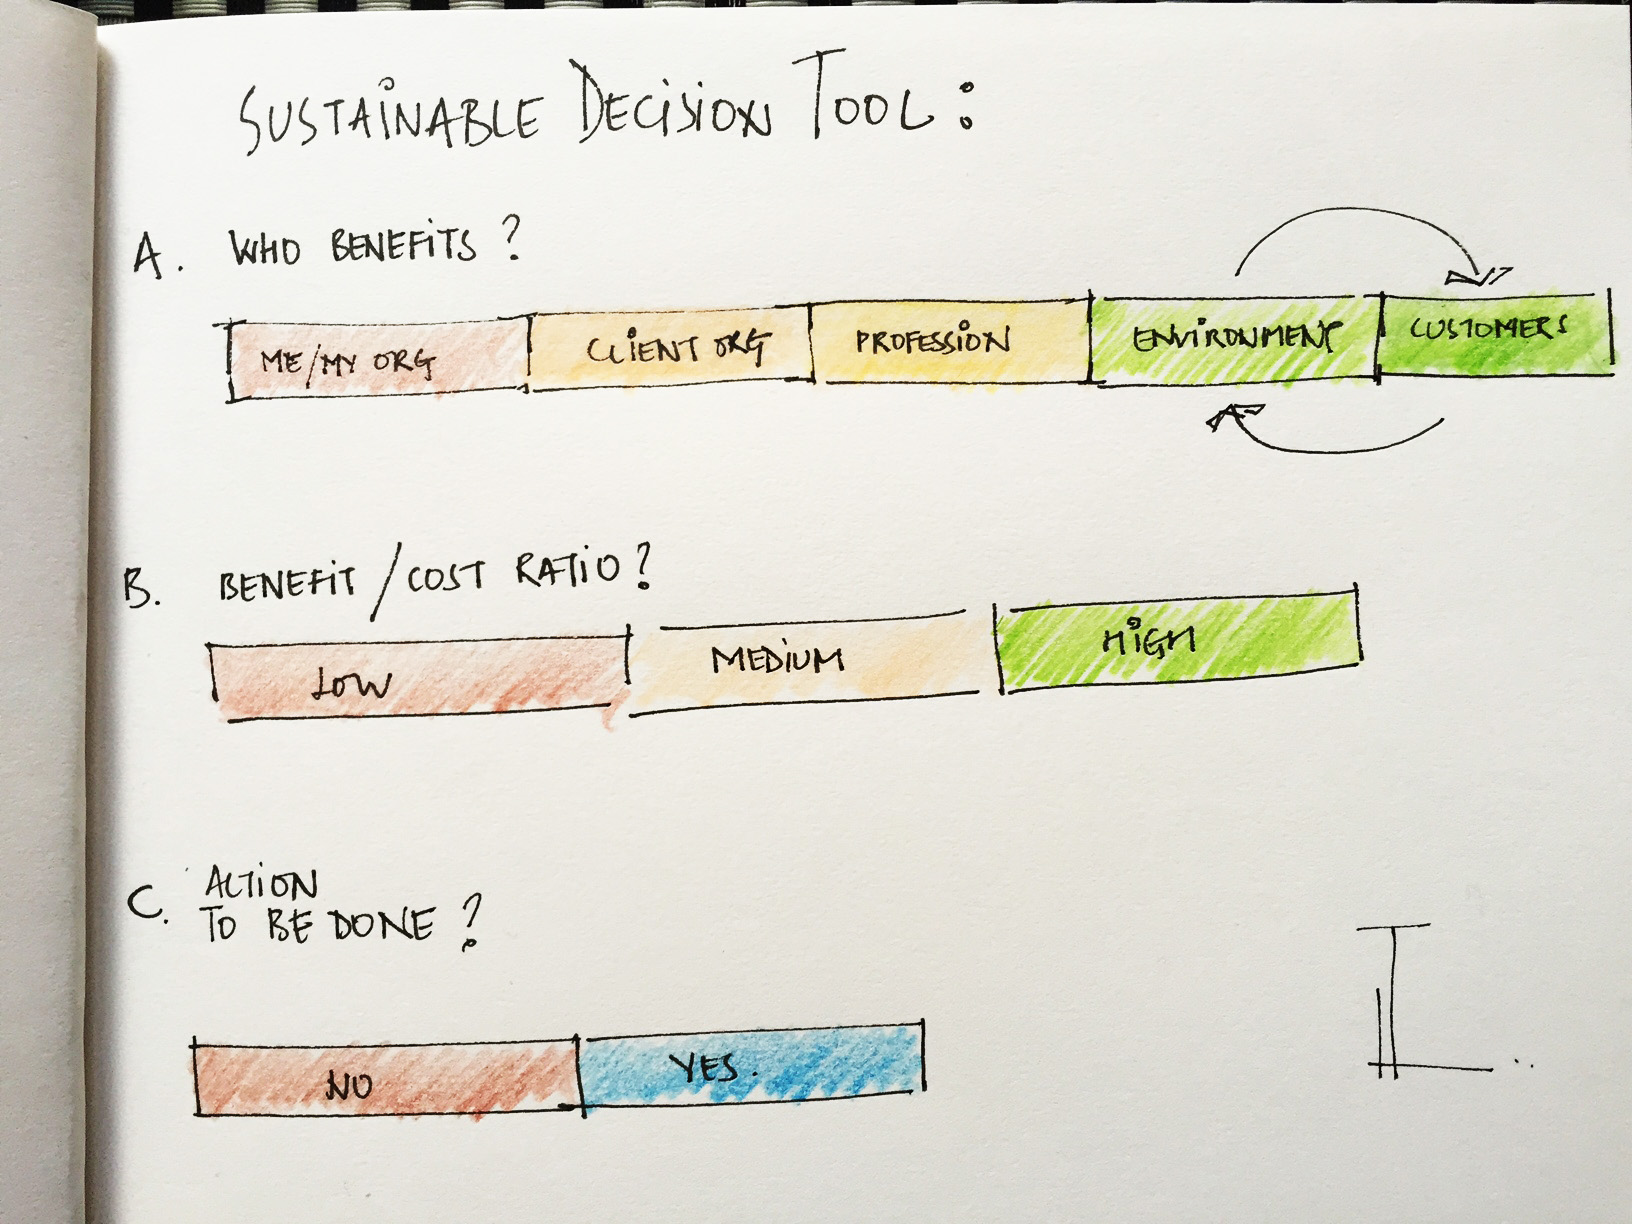 SUSTAINABLE DECISION TOOL:
A. WHO BENEFITS?
ME/MY ORG CLIENT ORG PROFESSION ENVIRONMENT CUSTOMERS
B. BENEFIT/COST RATIO?
LOW MEDIUM HIGH
C. ACTION
TO BE DONE?
NO YES.